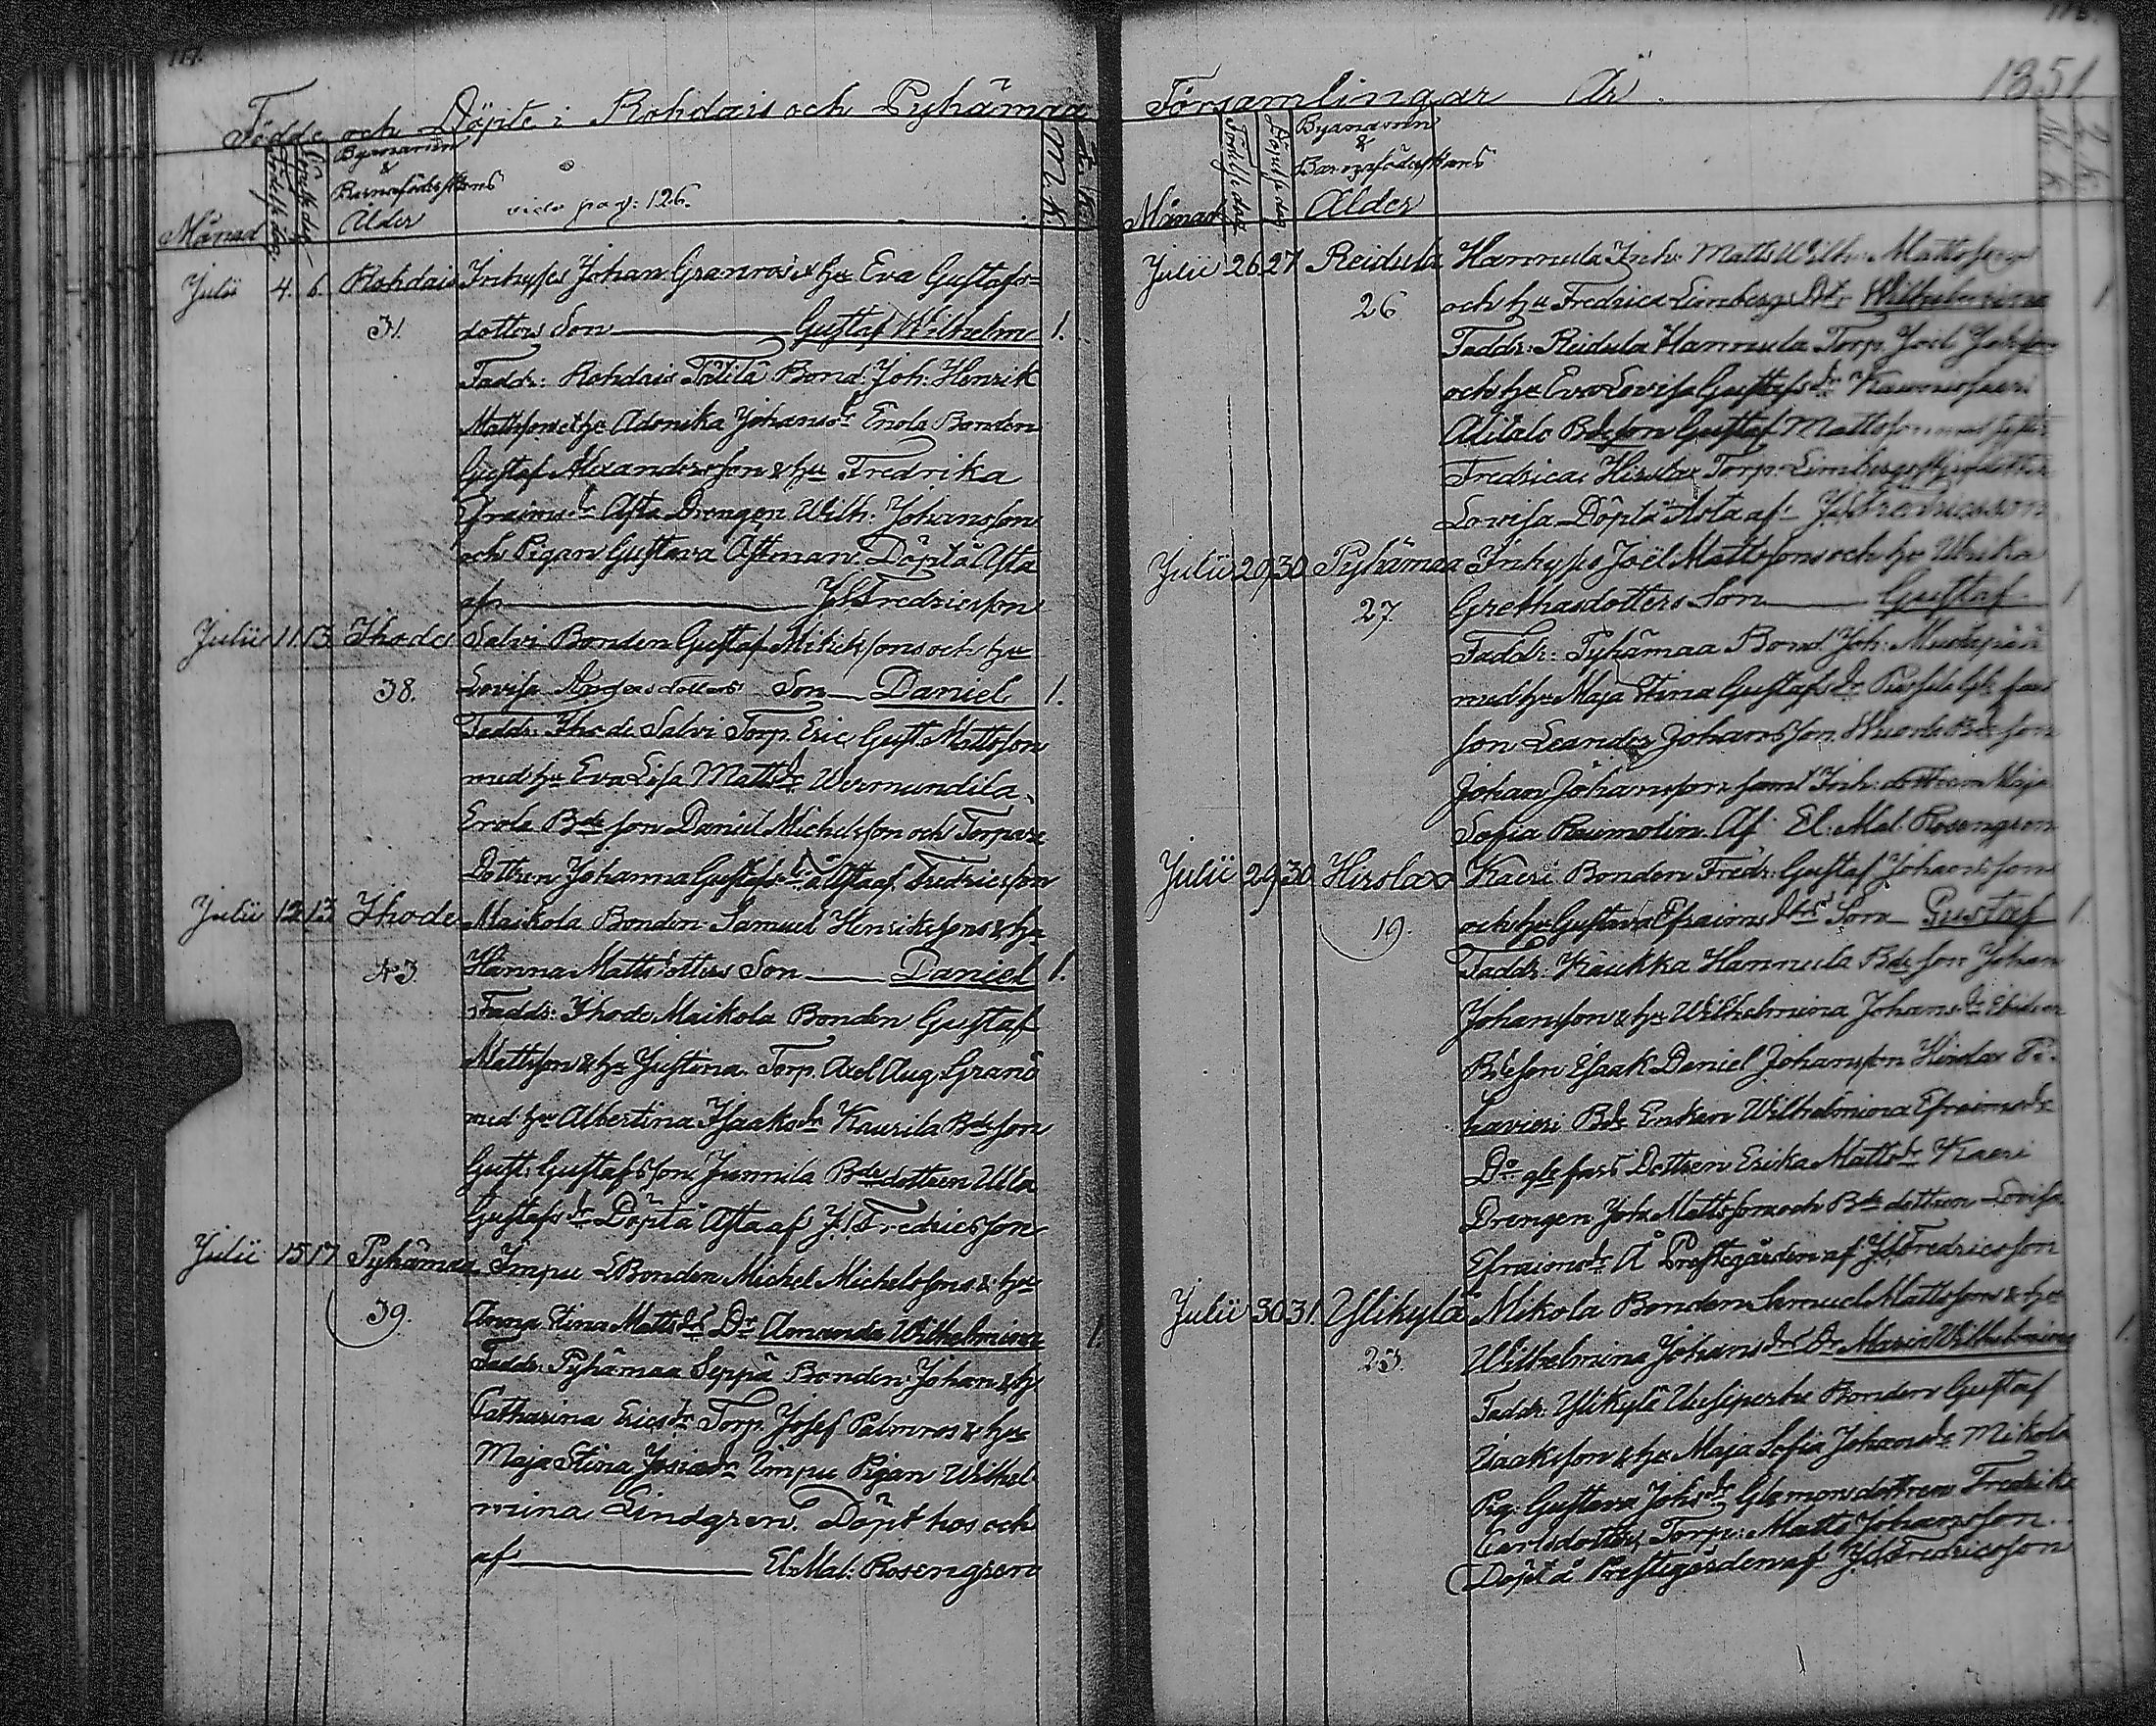 Födde och Döpte i Rohdais och Pyhämaa
Månad
Födelse dag
Byanamn
&
Barnaföderskans
Ålder
vide pag: 126.
M. K.
Q. K.
Julii 4. 6. Rohdais Inhyses Johan Granroos & hu Eva Gustafs=
31. dotters Son Gustaf Wilhelm 1.
Faddr: Rohdais Bond. Joh: Henrik
Mattsson & hu Johansdr Erola Bonden
Gustaf Alexandersson & hu Fredrika
Efraimsdr Asta Drengen Wilh: Johansson
och Pigan Gustava Öfstman. Döpt å Asta
af Fredricsson
Julii 11. 13. Ihode Salvi Bonden Gustaf Mickelssons och hu
38. Lovisa Andersdotters Son Daniel 1.
Faddr: Ihode Salvi Torp. Eric Gust. Mattsson
med hu Eva Lisa Mattsdr Wermundila
Erola Bde son Daniel Michelsson och Torpare
Dottren Johanna Gustafsdr å Asta af Fredricsson
Julii 12. 13. Ihode Maikola Bonden Samuel Henrikssons & hu
43. Hanna Mattsdotters Son Daniel 1.
Faddr: Ihode Maikola Bonden Gustaf
Mattsson & hu Justina. Torp. Axel Aug. Granö
med hu Albertina Isaksdr Kaurila Bde son
Gust: Gustafsson Junnila Bde dottren Ulla
Gustafsdr Döpt å Asta af Fredricsson
Julii 15 17 Pyhämaa Impu Bonden Michel Michelssons & hu
39. Anna Stina Mattsdrs Dr Amanda Wilhelmina 1.
Faddr: Pyhämaa Seppä Bonden Johan & hu
Catharina Ericsdr Torp. Josef Palmros & hu
Maja Stina Impu Pigan Wilhel
mina Lindgren. Döpt hos och
af El: Mal: Rosengren
Församlingar År 1851
Månad
Födelse dag
Döpelse dag
Byanamn
&
Barnaföderskans
Ålder
M. K.
Q. K.
Julii 26. 27 Reidula Hannula Inh: Matts Wilh: Mattssons
26 och hu Fredrica Limbergs Dtr Wilhelmina 1
Faddr: Reidula Hannula Torp. Joel Johsson
och hu Eva Lovisa Gustafsdr
Alitalo Bde son Gustaf Mattsson
Fredrica Hirslax Torp: Limbergs
Lovisa Döpt å Asta af Fredricsson
Julii 29. 30. Pyhämaa Inhyses Joël Mattssons och hu Ulrika
27. Grethasdotters Son Gustaf 1
Faddr: Pyhämaa Bond. Joh:
med hu Maja Stina Gustafsdr
son Leander Johansson Bde son
Johan Johansson samt Inh: dottren Maja
Sofia Raumolin. Af El: Mal: Rosengren
Julii 29. 30 Hirslax Kaeri Bonden Fredr: Gustaf Johanssons
19. och hu Gustava Efraimsdtrs Son Gustaf 1.
Faddr: Kaukka Hannula Bde son Johan
Johansson & hu Wilhelmina Johansdr
Bde son Esaak Daniel Johansson Hirslax
Bde Enkan Wilhelmina Efraimsdr
Do Dottren Erika Mattsdr Kaeri
Drengen Joh: Mattsson och Bde dottren Lovisa
Efraimsdr Å Prestegården af Fredricsson
Julii 30 31. Ylikylä Mikola Bonden Samuel Mattssons & hu
23. Wilhelmina Johansdrs Dr Maria Wilhelmina 1.
Faddr: Ylikylä Uusiperhe Bonden Gustaf
Isaksson & hu Maja Sofia Johansdr Mikola
Pig: Gustava Johsdr dottren Fredrika
Carlsdotter, Torp: Matts Johansson.
Döpt å Prestegården af Fredricsson